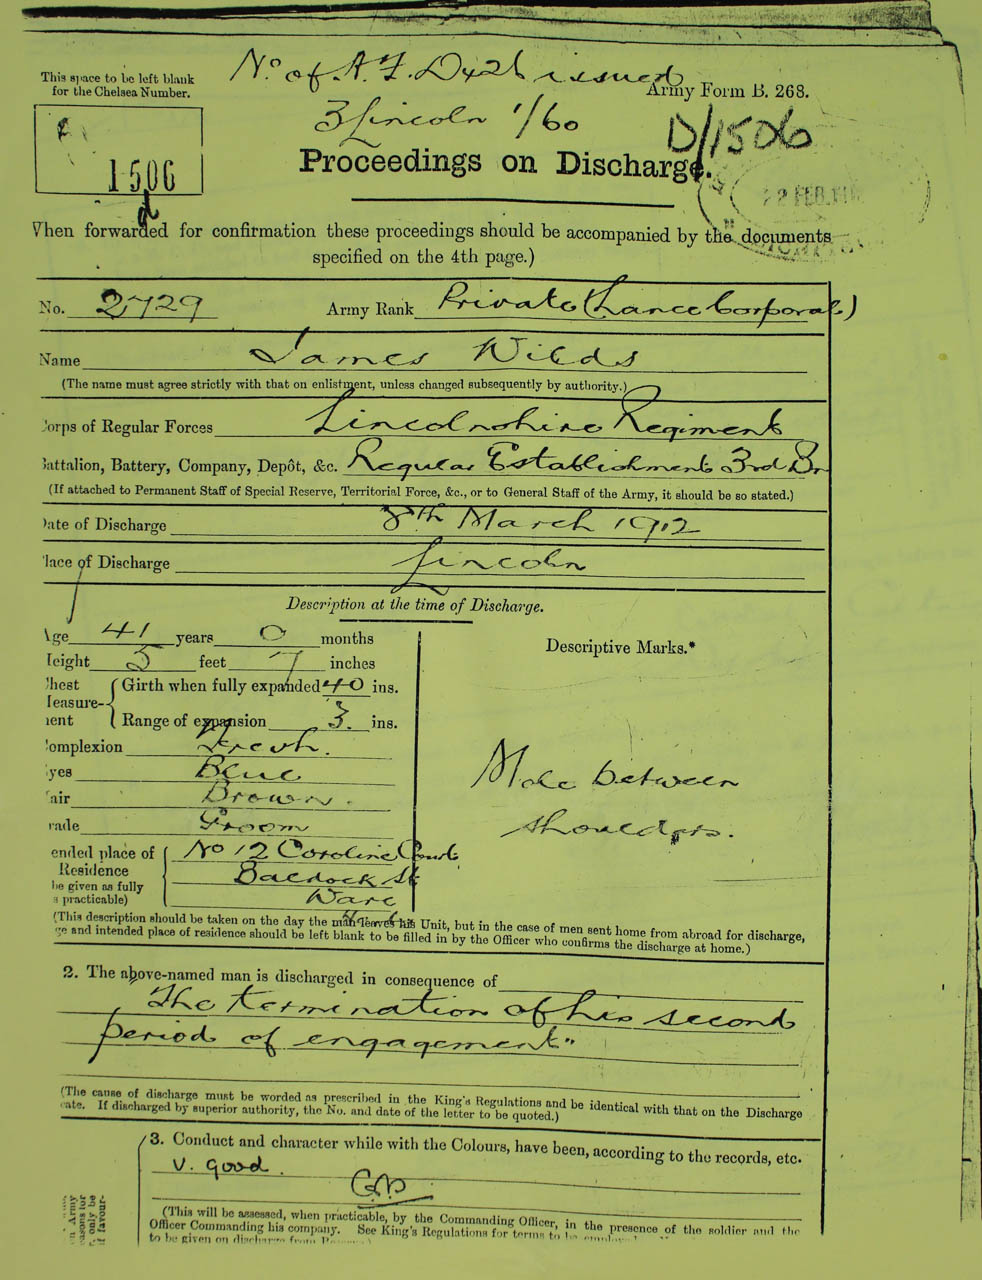 No. of A. F. D426 issued
This space to be left blank
for the Chelsea Number.
Army Form B. 268.
3 Lincoln 1/60
D/1506
1506
Proceedings on Discharge.
22 FEB.
When forwarded for confirmation these proceedings should be accompanied by the documents
specified on the 4th page.)
No. 2729 Army Rank Private (Lance Corporal)
Name James Wilds
(The name must agree strictly with that on enlistment, unless changed subsequently by authority.)
Corps of Regular Forces Lincolnshire Regiment
Battalion, Battery, Company, Depôt, &c. Regular Establishment 3rd Bn
(If attached to Permanent Staff of Special Reserve, Territorial Force, &c., or to General Staff of the Army, it should be so stated.)
Date of Discharge 8th March 1912
Place of Discharge Lincoln
Description at the time of Discharge.
Age 41 years 0 months
Height 5 feet 7 inches
Chest Measure-ment
Girth when fully expanded 40 ins.
Range of expansion 3 ins.
Complexion Fresh.
Eyes Blue
Hair Brown.
Trade Groom
ended place of Residence
be given as fully
s practicable)
No 12 Caroline Court
Baldock St
Ware
Descriptive Marks.*
Mole between
shoulders.
(This description should be taken on the day the man leaves his Unit, but in the case of men sent home from abroad for discharge,
ge and intended place of residence should be left blank to be filled in by the Officer who confirms the discharge at home.)
2. The above-named man is discharged in consequence of
"The termination of his second
period of engagement"
(The cause of discharge must be worded as prescribed in the King's Regulations and be identical with that on the Discharge
cate. If discharged by superior authority, the No. and date of the letter to be quoted.)
3. Conduct and character while with the Colours, have been, according to the records, etc.
V. good.
(This will be assessed, when practicable, by the Commanding Officer, in the presence of the soldier and the
Officer Commanding his company. See King's Regulations for terms to be
to be given on discharge from